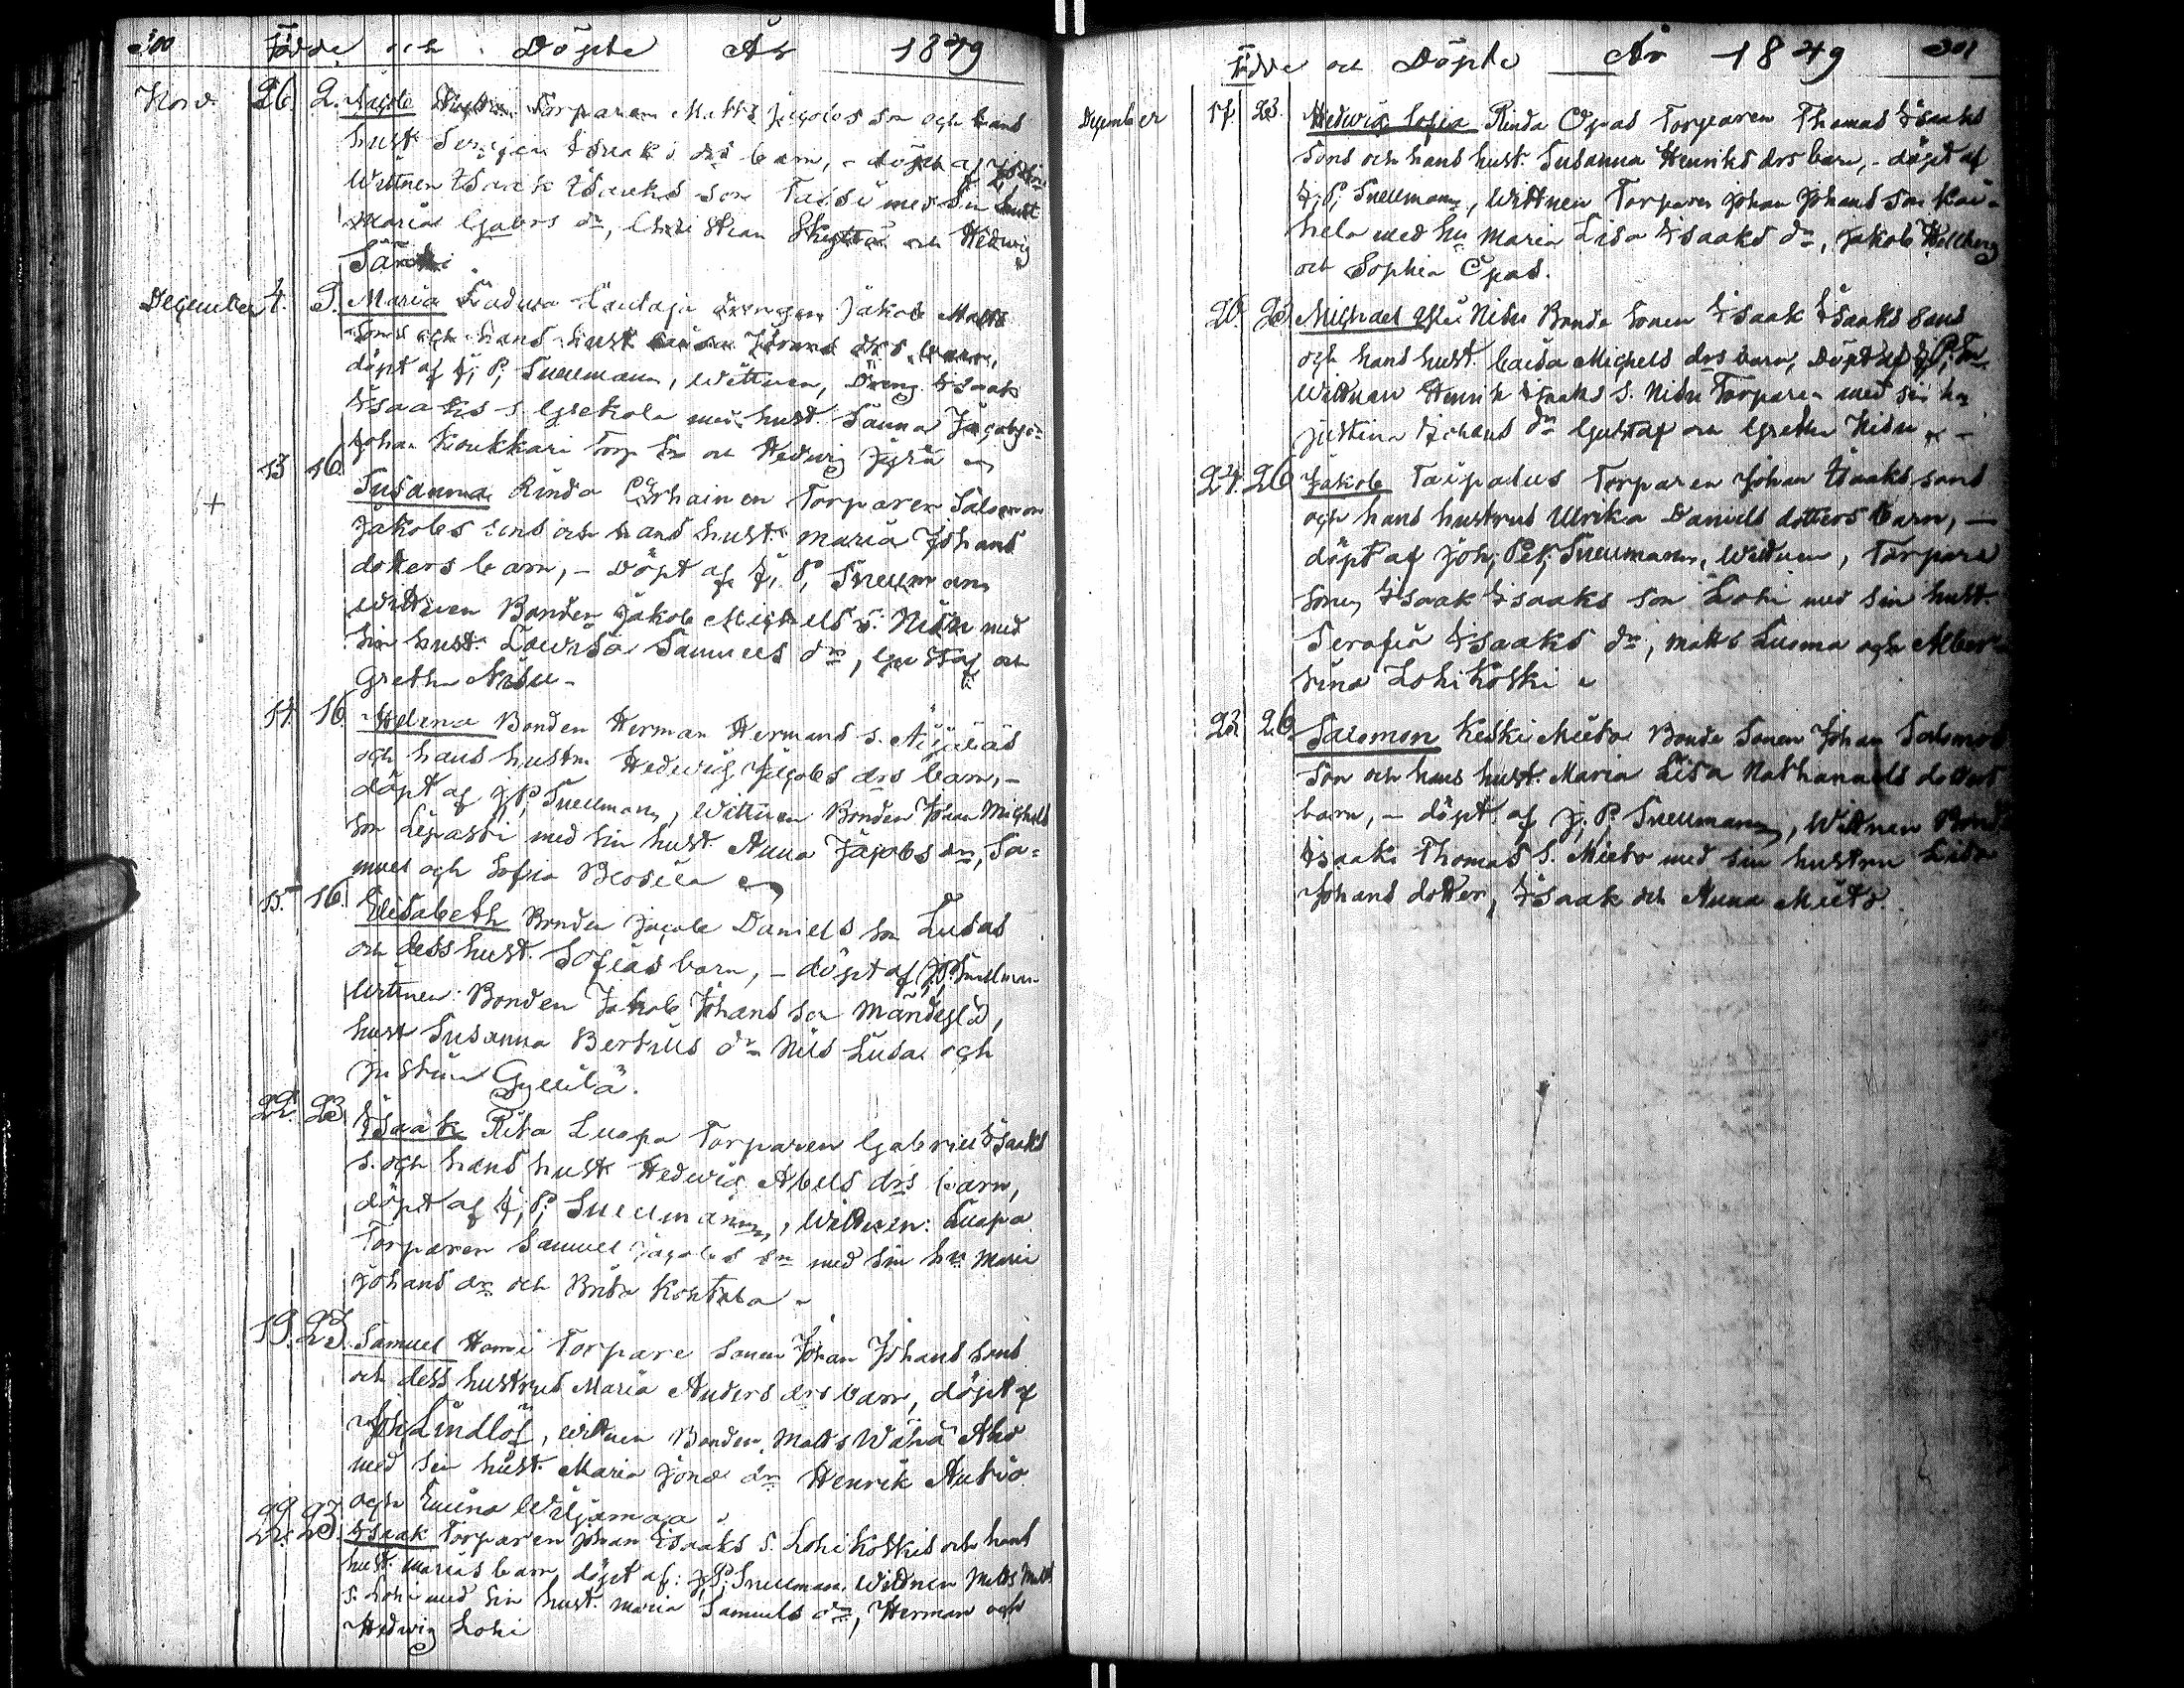 300 Födde och Döpte År 1849
Nov. 26. 2. Jacob Torparen Matts Jacobs son och hans
hust. Isaks drs barn, - döpt af
Wittnen Isaak Isaaks son Tassi med sin hust
Maria Gabrs dr, Christian och Hedwig
December 4. 9. Maria Jakob Matts
sons och hans hust Johans drs barn,
döpt af J. P. Snellmann, Wittnen, Dreng Isaak
Isaaks s. Grekola med hust. Sanna
Johan Koukkari Torp sn och Hedwig Jyrä
13 16 Susanna Rinda Torparen Salomon
Jakobs sons och hans hust. Maria Johans
dotters barn, - Döpt af J. P. Snellmann
Wittnen Bonden Jakob Michels s. Nisu med
sin hust. Lowisa Samuels dr, Gustaf och
Greth Nisu -
14. 16. Helena Bonden Herman Hermans s. Äijäläs
och hans hustru Hedwig Jacobs drs barn, -
döpt af J. P. Snellmann, Wittnen Bonden Johan Michels
son Lepasti med sin hust. Anna Jacobs dr, Sa=
muel och Sofia
15. 16. Elisabeth Bonden Jacob Daniels son Lusas
och dess hust. Sofias barn, - döpt af J. P. Snellman
Wittnen: Bonden Jakob Johans son
hust Susanna Bertils dr Nils Lusa och
Justina Gyllilä.
22. 23 Isaak Rita Luopa Torparen Gabriel Isaaks
s. och hans hust Hedwig Abels drs barn,
döpt af J. P. Snellmann, Wittnen: Luopa
Torparen Samuel Jacobs sn med sin hu Maria
Johans dr och Brita Kohtala -
19. 23. Samuel Homi Torpare sonen Johan Johans sons
och dess hustrus Maria Anders drs barn, döpt af
Joh. Lindlöf, Wittnen Bonden Matts Wähä Aho
med sin hust. Maria Jona dr Henrik Autio
och Wiljamaa
22. 23. Isaak Torparen Johan Isaaks s. Lohikoskis och hans
hust. Marias barn, döpt af: J. P. Snellmann, Wittnen Matts Matts
s. Lohi med sin hust. Maria Samuels dr, Herman och
Hedwig Lohi
Födde och Döpte År 1849 301
December 17. 23. Hedwig Sofia Rinda Opas Torparen Thomas Isaaks
sons och hans hust. Susanna Henriks drs barn, - döpt af
J. P. Snellmann, Wittnen Torparen Johan Johans son
med hu Maria Lisa Isaaks dr, Jakob
och Sophia Opas.
20. 23 Michael Nisu Bonde sonen Isaak Isaaks sons
och hans hust. Caisa Michels drs barn, Döpt af J. P. Sn.
Wittnen Henrik Isaaks s. Nisu Torparen med sin hu
Justina Johans dr Gustaf och Gretha Nisu -
24. 26 Jakob Taipalus Torparen Johan Isaaks sons
och hans hustrus Ulrika Daniels dotters barn, -
döpt af Joh. Pet. Snellmann, Wittnen, Torpare
sonen Isaak Isaaks son Lohi med sin hust.
Serafia Isaaks dr, Matts Luoma och Alber=
tina Lohikoski
23. 26. Salomon Keski Mieto Bonde sonen Johan Salomos
son och hans hust. Maria Lisa Nathanaels dotters
barn, - döpt af J. P. Snellmann, Wittnen Bond
Isaak Thomas s. Mieto med sin hustru Lisa
Johans dotter, Isaak och Anna Mieto.